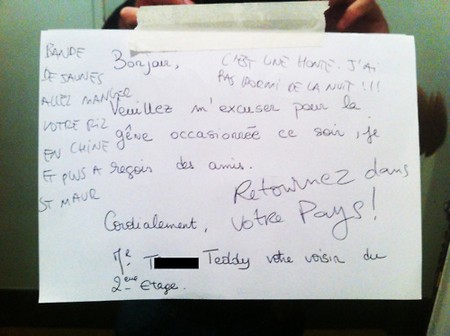 BANDE
DE JAUNES
ALLEZ MANGER
VOTRE RIZ
EN CHINE
ET PLUS A
ST MAUR
Bonjour,
C'EST UNE HONTE. J'AI
PAS DORMI DE LA NUIT !!!
Veuillez m'excuser pour la
gêne occasionnée ce soir, je
reçois des amis.
Retournez dans
votre Pays!
Cordialement,
Mr T Teddy votre voisin du
2eme Etage.